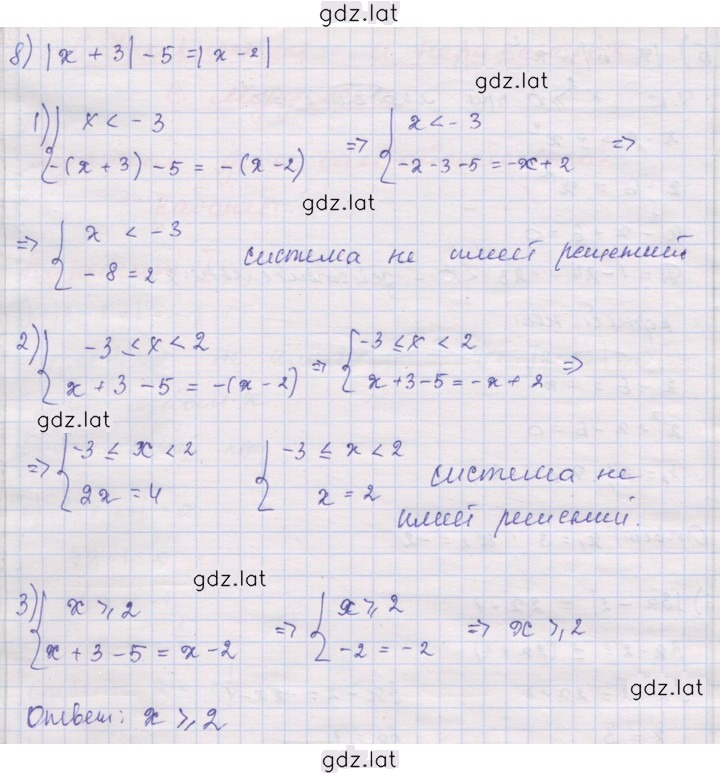 gdz.lat
8) |x + 3| - 5 = |x - 2|
gdz.lat
1) { x < -3 => { x < -3 =>
-(x + 3) - 5 = -(x - 2) -2 - 3 - 5 = -x + 2
gdz.lat
=> { x < -3 система не имеет решений
-8 = 2
2) { -3 ≤ x < 2 => { -3 ≤ x < 2 =>
x + 3 - 5 = -(x - 2) x + 3 - 5 = -x + 2
gdz.lat
=> { -3 ≤ x < 2 { -3 ≤ x < 2 система не
2x = 4 x = 2 имеет решений.
gdz.lat
3) { x ≥ 2 => { x ≥ 2 => x ≥ 2
x + 3 - 5 = x - 2 -2 = -2
gdz.lat
Ответ: x ≥ 2
gdz.lat